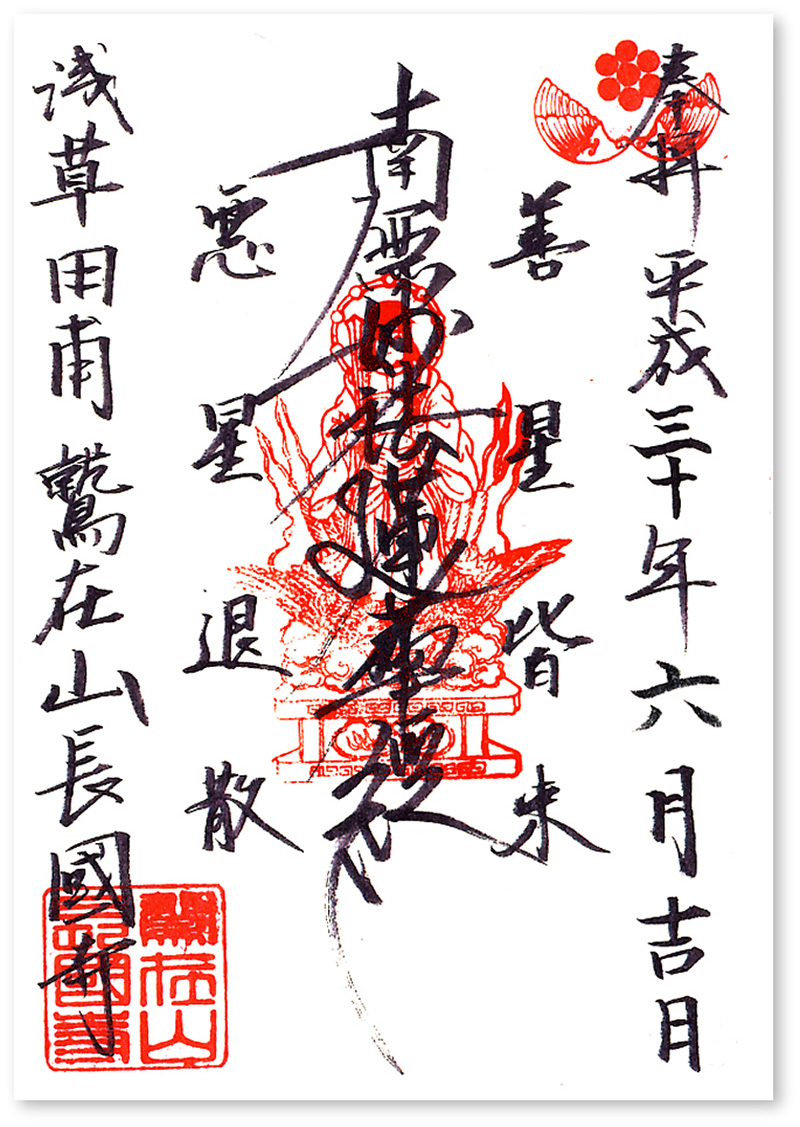 奉拝 平成三十年六月吉日
善星皆来
南無妙法蓮華経
悪星退散
浅草田甫鷲在山長國寺
鷲在山
長國寺